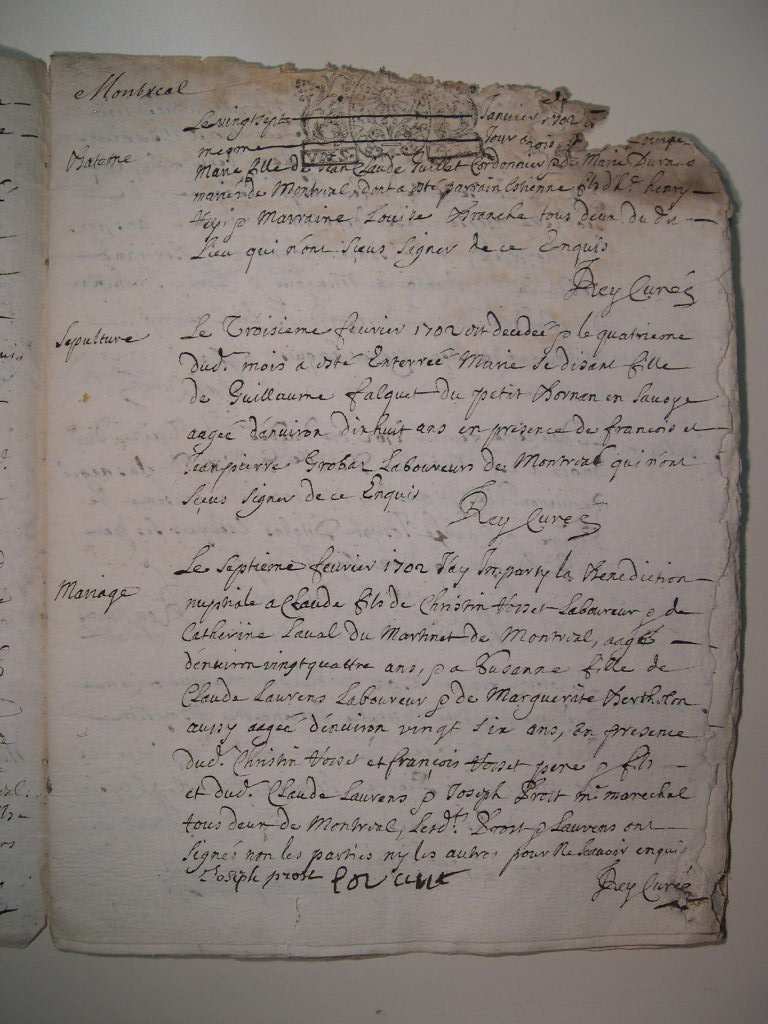 Montreal
Le vingt sept Janvier 1702
mesme Jour a
Bateme
Marie fille de Jean Claude Guillet Cordonnier & de Marie
mariés de Montreal, dont a esté parrain Estienne fils d'h.e henry
& Marraine Louise Branche tous deux du d.
Lieu qui n'ont sceus signer de ce Enquis
Rey Curé
Sepulture
Le Troisieme fevrier 1702 est decedeé & le quatrieme
dud. mois a esté Enterreé Marie se disant fille
de Guillaume falquet du petit Bornan en Savoye
aageé d'anviron dixhuit ans en presence de françois et
Jeanpierre Grobaz Laboureurs de Montreal qui n'ont
sceus signer de ce Enquis
Rey Curé
Mariage
Le septieme fevrier 1702 J'ay Imparty la Benediction
nuptiale a Claude fils de Christin Vosset Laboureur & de
Catherine Laval du Martinet de Montreal, aagé
d'environ vingt quattre ans, & a Susanne fille de
Claude Laurens Laboureur & de Marguerite Bertholon
aussy aageé d'environ vingt six ans, En presence
dud. Christin Vosset et françois Vosset pere & fils
et dud. Claude Laurens & Joseph Prost m.e marechal
tous deux de Montreal, Lesd.t Prost & Laurens ont
signés non les parties ny les autres pour ne scavoir enquis
Joseph prost
Rey Curé